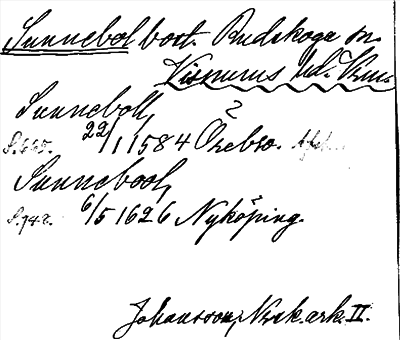 Sunnebol bort. Rudskoga sn.
Visnums hd. Vrml
Sunneboll,
S. 660. 22/1 1584 Örebro. ?
Sunnebool,
S. 742. 6/5 1626 Nyköping.
Johansson, Nork. ark. II.